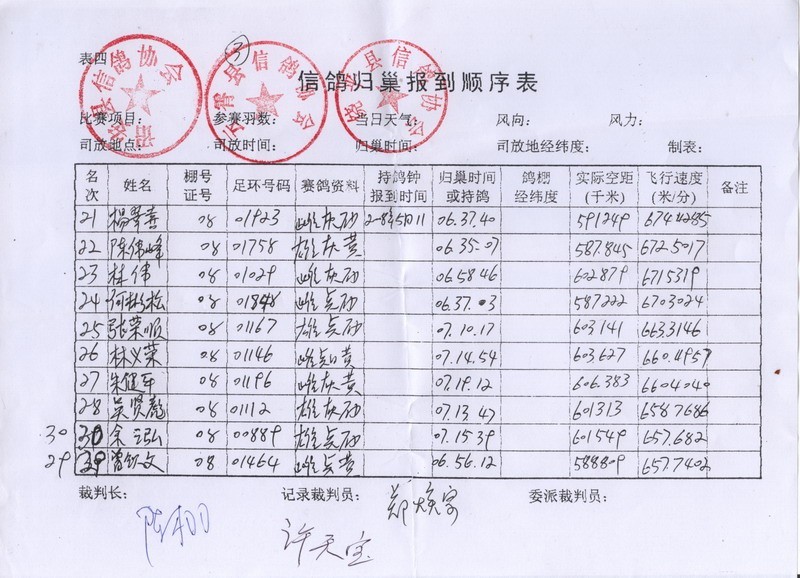 表四
③
信鸽归巢报到顺序表
比赛项目： 参赛羽数： 当日天气： 风向： 风力：
司放地点： 司放时间： 归巢时间： 司放地经纬度： 制表：
名次 姓名 棚号证号 足环号码 赛鸽资料 持鸽钟报到时间 归巢时间或持鸽 鸽棚经纬度 实际空距(千米) 飞行速度(米/分) 备注
21 杨翠善 08 01923 雌灰砂 06.37.40 591249 6744285
22 陈伟峰 08 01758 雄灰黄 06.35.07 587.845 672.5017
23 林伟 08 01029 雌灰砂 06.58 46 602879 6715319
24 何彬松 08 01848 雌点砂 06.37.03 587222 6703024
25 张荣顺 08 01167 雄点砂 07.10.17 603141 663.3146
26 林义荣 08 01146 雌点黄 07.14.54 603.627 660.4957
27 朱健军 08 01196 雌灰黄 07.19.12 606.383 6604040
28 吴贤彪 08 01112 雄灰砂 07.13 47 601313 658.7686
30 30 余泓 08 00889 雄点砂 07.15 39 601549 657.682
29 29 曾钦文 08 01464 雌点黄 06.56.12 588809 657.7402
裁判长： 记录裁判员： 郑焕家 委派裁判员：
许天宝